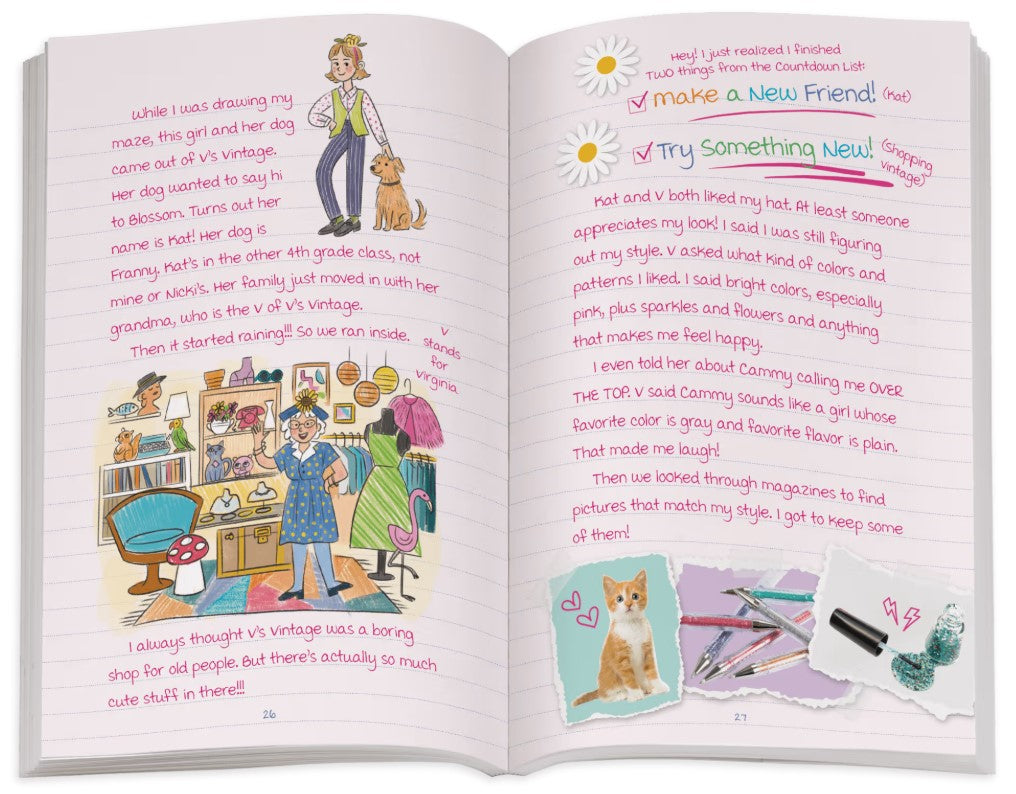 While I was drawing my
maze, this girl and her dog
came out of V's Vintage.
Her dog wanted to say hi
to Blossom. Turns out her
name is Kat! Her dog is
Franny. Kat's in the other 4th grade class, not
mine or Nicki's. Her family just moved in with her
grandma, who is the V of V's Vintage.
Then it started raining!!! So we ran inside.
V
stands
for
Virginia
I always thought V's Vintage was a boring
shop for old people. But there's actually so much
cute stuff in there!!!
26
Hey! I just realized I finished
TWO things from the Countdown List:
make a New Friend! (Kat)
Try Something New! (Shopping
vintage)
Kat and V both liked my hat. At least someone
appreciates my look! I said I was still figuring
out my style. V asked what kind of colors and
patterns I liked. I said bright colors, especially
pink, plus sparkles and flowers and anything
that makes me feel happy.
I even told her about Cammy calling me OVER
THE TOP. V said Cammy sounds like a girl whose
favorite color is gray and favorite flavor is plain.
That made me laugh!
Then we looked through magazines to find
pictures that match my style. I got to keep some
of them!
27